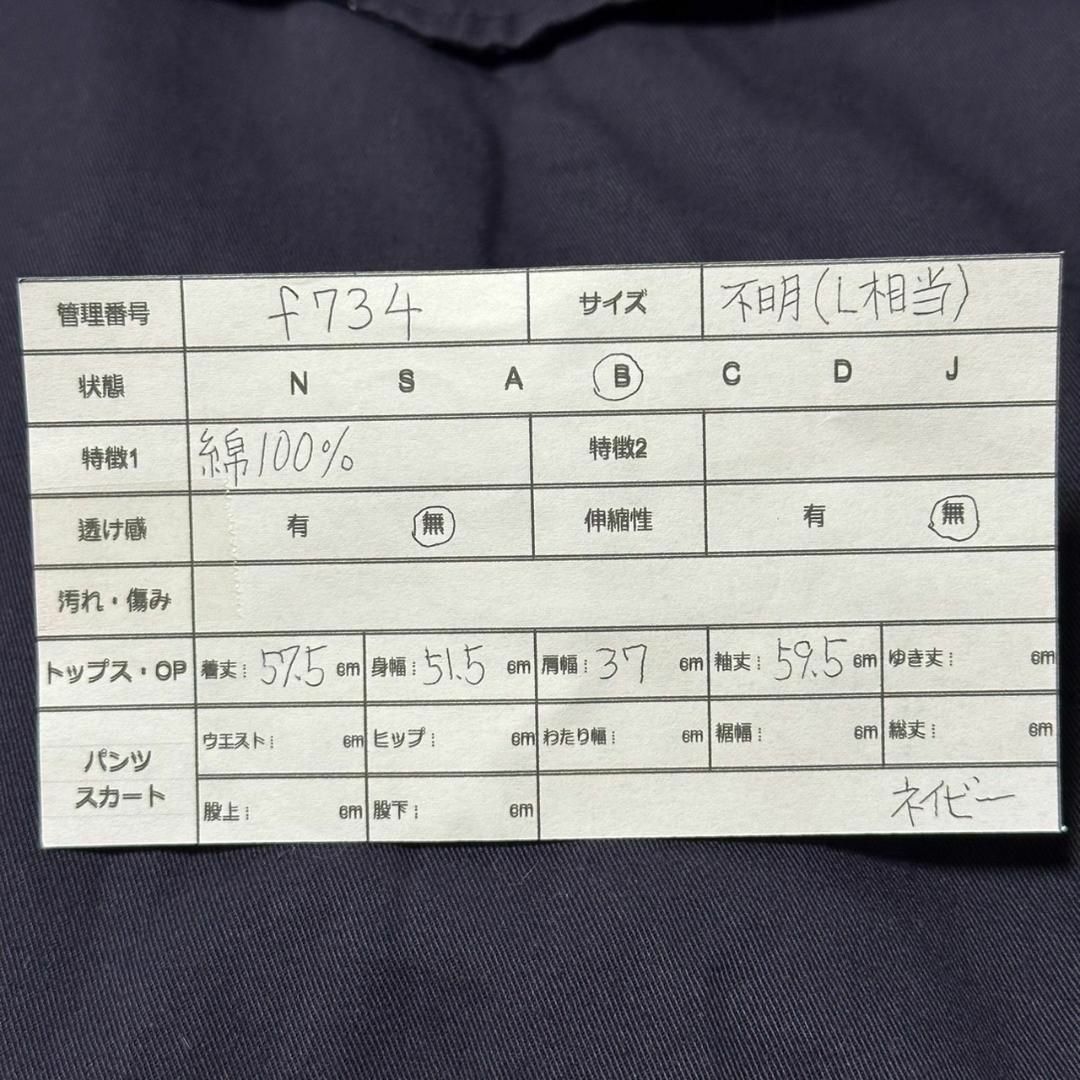 管理番号 f734 サイズ 不明(L相当)
状態 N S A B C D J
特徴1 綿100% 特徴2
透け感 有 無 伸縮性 有 無
汚れ・傷み
トップス・OP 着丈: 57.5 cm 身幅: 51.5 cm 肩幅: 37 cm 袖丈: 59.5 cm ゆき丈: cm
パンツ スカート ウエスト: cm ヒップ: cm わたり幅: cm 裾幅: cm 総丈: cm
股上: cm 股下: cm ネイビー